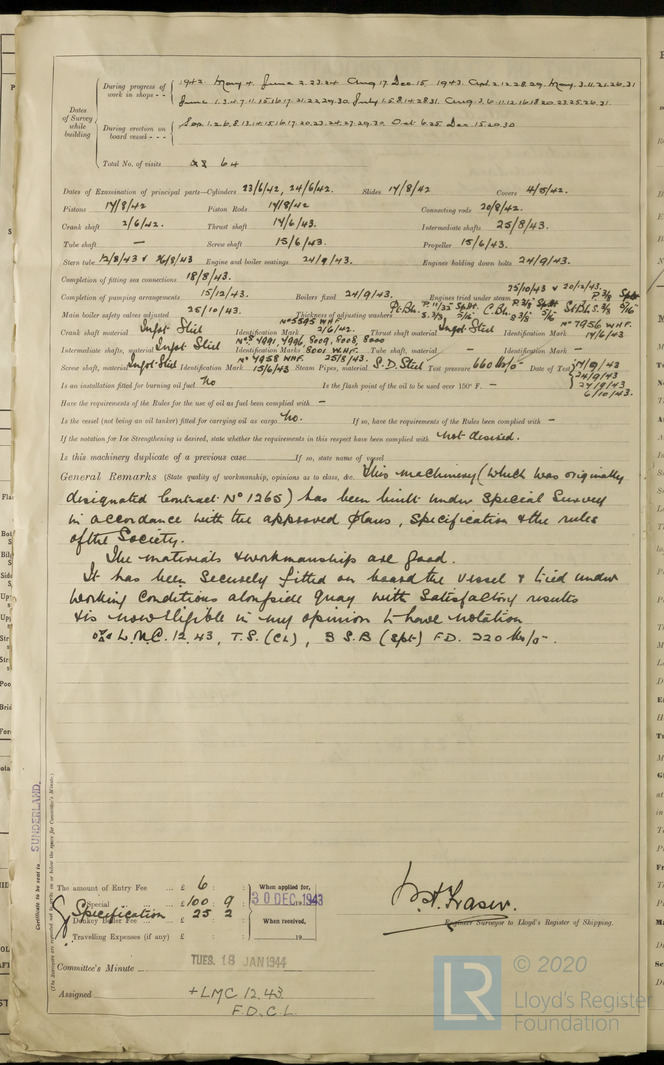 Dates of Survey while building
During progress of work in shops - -
1942. May 4. June 2.23.24 Aug 17. Dec. 15. 1943. Apl. 2.12.28.29. May. 3.11.21.26.31
June 1.3.4.7.11.15.16.17.21.22.29.30. July 1.5.8.14.28.31. Aug. 3.6.11.12.16.18.20.23.25.26.31.
During erection on board vessel - - -
Sep. 1.2.6.8.13.14.15.16.17.20.23.24.27.29.30. Oct 6.25 Dec 15.20.30
Total No. of visits 64
Dates of Examination of principal parts—Cylinders 23/6/42, 24/6/42. Slides 17/8/42 Covers 4/5/42.
Pistons 17/8/42 Piston Rods 17/8/42 Connecting rods 20/8/42.
Crank shaft 2/6/42. Thrust shaft 14/6/43. Intermediate shafts 25/8/43.
Tube shaft — Screw shaft 15/6/43. Propeller 15/6/43.
Stern tube 12/8/43 & 26/8/43 Engine and boiler seatings 24/9/43. Engines holding down bolts 24/9/43.
Completion of fitting sea connections 18/8/43.
Completion of pumping arrangements 15/12/43. Boilers fixed 24/9/43. Engines tried under steam 25/10/43 & 20/12/43.
Main boiler safety valves adjusted 25/10/43. Thickness of adjusting washers Pt. Blr. P. 11/32 Spht. S. 3/8 5/16 C. Blr. P. 3/8 Spht S 3/8 5/16 St. Blr. P. 3/8 S. 3/8 Spht 5/16
Crank shaft material Ingot Steel Identification Mark No 5595 WHF. 2/6/42. Thrust shaft material Ingot Steel Identification Mark No 7956 WHF. 14/6/43
Intermediate shafts, material Ingot Steel Identification Marks Nos 4991, 4996, 8009, 8008, 8000 8001 WHF. 25/8/43. Tube shaft, material — Identification Mark —
Screw shaft, material Ingot Steel Identification Mark No 7958 WHF. 15/6/43 Steam Pipes, material S.D. Steel Test pressure 660 lbs/□" Date of Test 17/9/43 24/9/43 27/9/43 6/10/43.
Is an installation fitted for burning oil fuel No Is the flash point of the oil to be used over 150° F. —
Have the requirements of the Rules for the use of oil as fuel been complied with —
Is the vessel (not being an oil tanker) fitted for carrying oil as cargo No. If so, have the requirements of the Rules been complied with —
If the notation for Ice Strengthening is desired, state whether the requirements in this respect have been complied with Not desired.
Is this machinery duplicate of a previous case If so, state name of vessel
General Remarks (State quality of workmanship, opinions as to class, &c. This machinery (which was originally
designated Contract No 1265) has been built under Special Survey
in accordance with the approved plans, specification & the rules
of the Society.
The materials & workmanship are good.
It has been securely fitted on board the vessel & tried under
working conditions alongside quay with satisfactory results
& is now eligible in my opinion to have notation
L.M.C. 12.43, T.S. (CL), 3 S.B (Spt) F.D. 220 lbs/□".
Certificate to be sent to SUNDERLAND.
(The Surveyors are requested not to write on or below the space for Committee's Minute.)
The amount of Entry Fee ... £ 6 : : When applied for,
Special ... £ 100 : 9 : 30 DEC 1943
Specification
Donkey Boiler Fee ... £ 25 : 2 : When received,
Travelling Expenses (if any) £ : : 19
W.H. Fraser.
Engineer Surveyor to Lloyd's Register of Shipping.
Committee's Minute TUES. 18 JAN 1944
Assigned + LMC 12.43.
F.D. C.L.
LR
© 2020
Lloyd's Register
Foundation